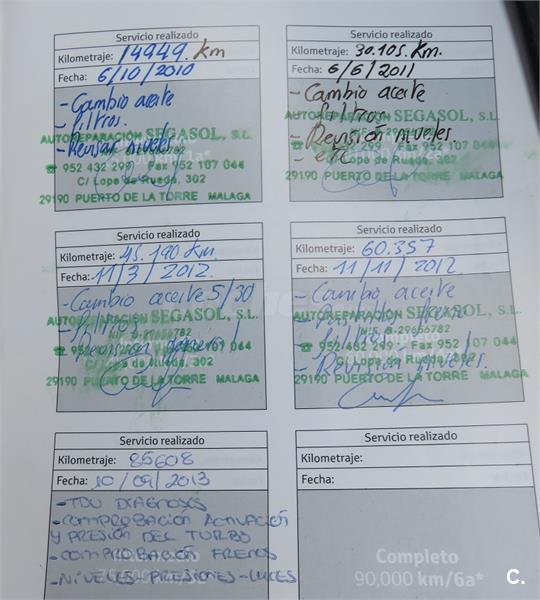 Servicio realizado
Kilometraje: 14949. km
Fecha: 6/10/2010
- Cambio aceite
- filtros.
- Revisar niveles
AUTOREPARACIÓN SEGASOL, S.L.
☎ 952 432 299 Fax 952 107 044
C/ Lope de Rueda, 302
29190 PUERTO DE LA TORRE MALAGA
Servicio realizado
Kilometraje: 30.105. Km.
Fecha: 6/6/2011
- Cambio aceite
filtros
AUTOREPARACIÓN SEGASOL, S.L.
- Revisión niveles
- etc
☎ 952 432 299 Fax 952 107 044
C/ Lope de Rueda, 302
29190 PUERTO DE LA TORRE MALAGA
Servicio realizado
Kilometraje: 45.190 Km.
Fecha: 11/3/2012.
- Cambio aceite 5/30
AUTOREPARACIÓN SEGASOL, S.L.
- filtros
- Revisión general
C/ Lope de Rueda, 302
29190 PUERTO DE LA TORRE MALAGA
Servicio realizado
Kilometraje: 60.357
Fecha: 11/11/2012.
- Cambio aceite
AUTOREPARACIÓN SEGASOL, S.L.
N.I.F. B-29656782
- filtros
☎ 952 432 299 Fax 952 107 044
C/ Lope de Rueda, 302
- Revisión niveles.
29190 PUERTO DE LA TORRE MALAGA
Servicio realizado
Kilometraje: 85608
Fecha: 10/09/2013
- TDU DIAGNOSIS
- COMPROBACIÓN ACTUACIÓN
Y PRESIÓN DEL TURBO
- COMPROBACIÓN FRENOS
- NIVELES - PRESIONES - LUCES
Servicio realizado
Kilometraje:
Fecha:
Completo
90,000 km/6a*
C.